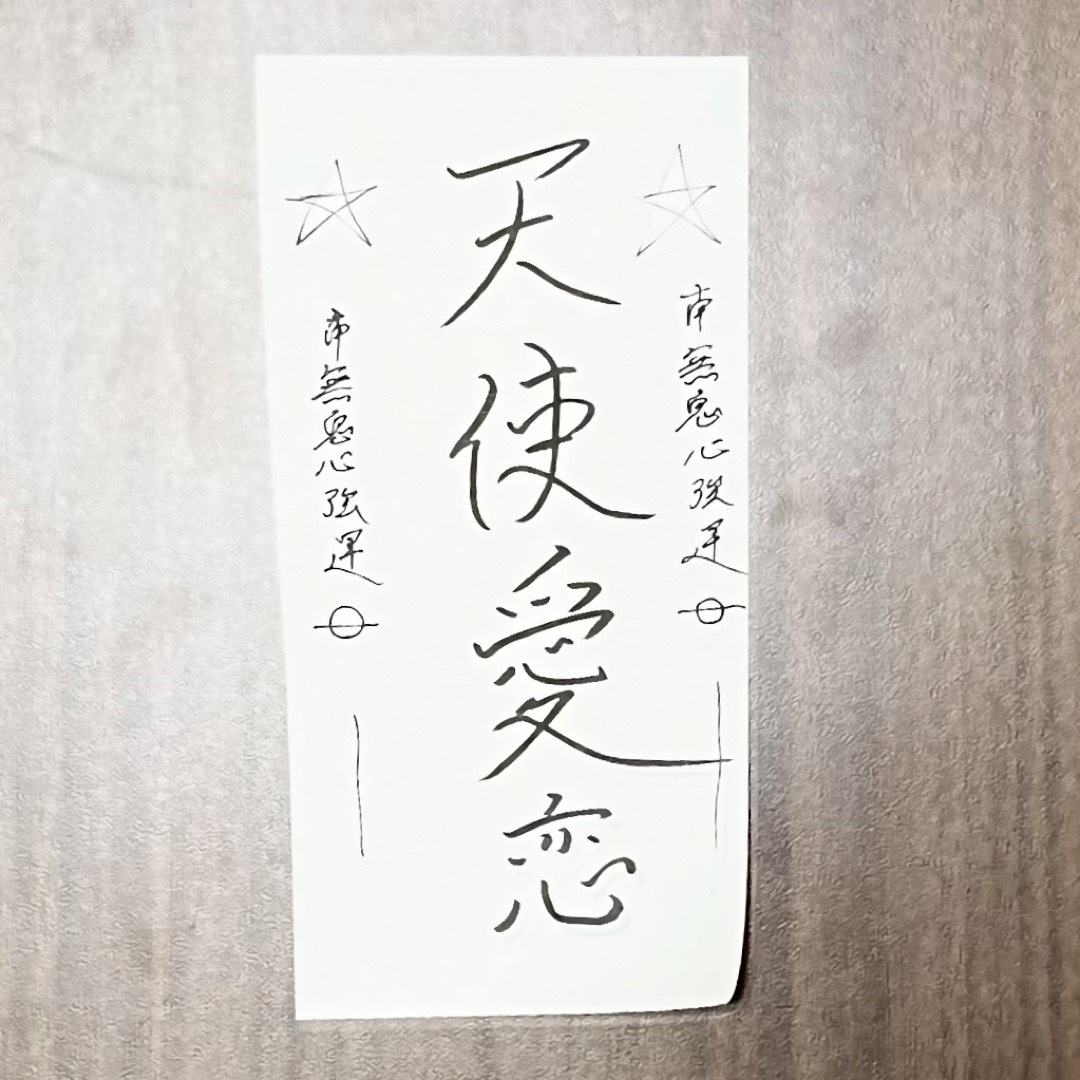 南無鬼心強運
天使愛恋
南無鬼心強運